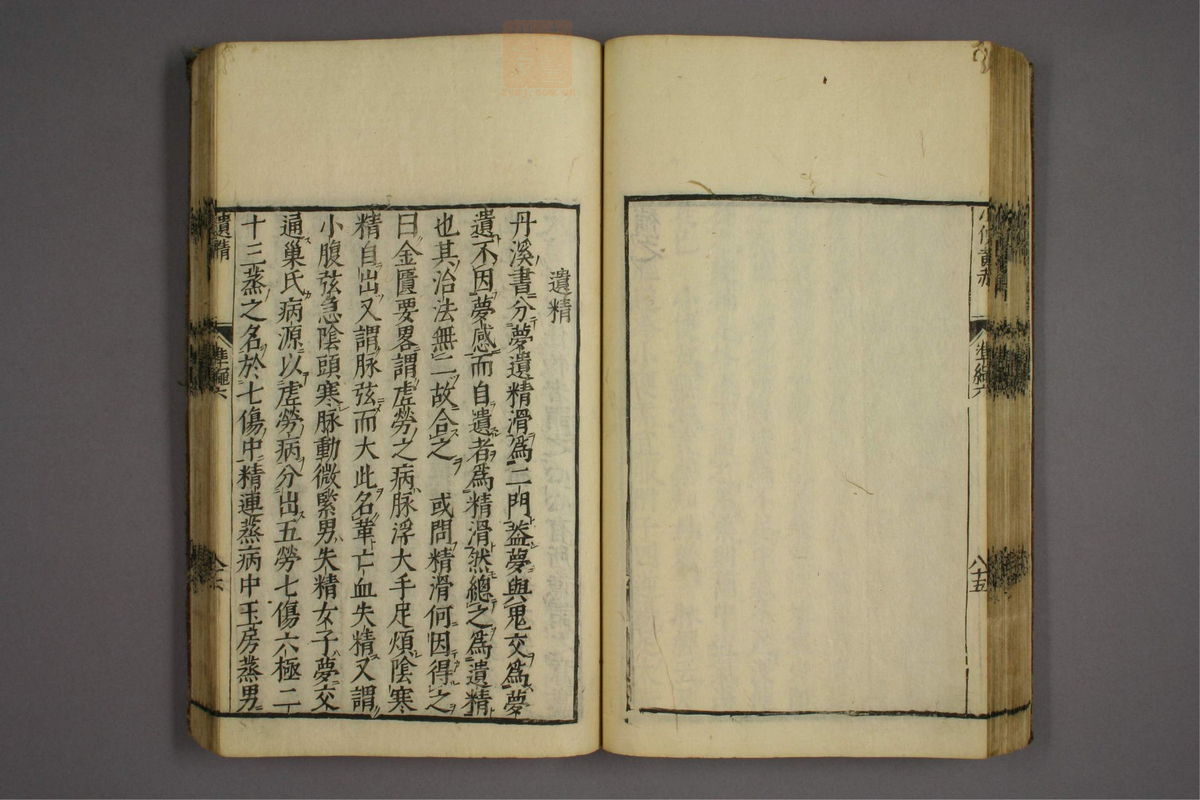 準繩六
八十五
遺精
丹溪書分夢遺精滑爲二門蓋夢與鬼交爲夢
遺不因夢感而自遺者爲精滑然總之爲遺精
也其治法無二故合之　或問精滑何因得之
曰金匱要畧謂虛勞之病脉浮大手足煩陰寒
精自出又謂脉弦而大此名革亡血失精又謂
小腹弦急陰頭寒脉動微緊男失精女子夢交
通巢氏病源以虛勞病分出五勞七傷六極二
十三蒸之名於七傷中精連蒸病中玉房蒸男
遺精
準繩六
八十六